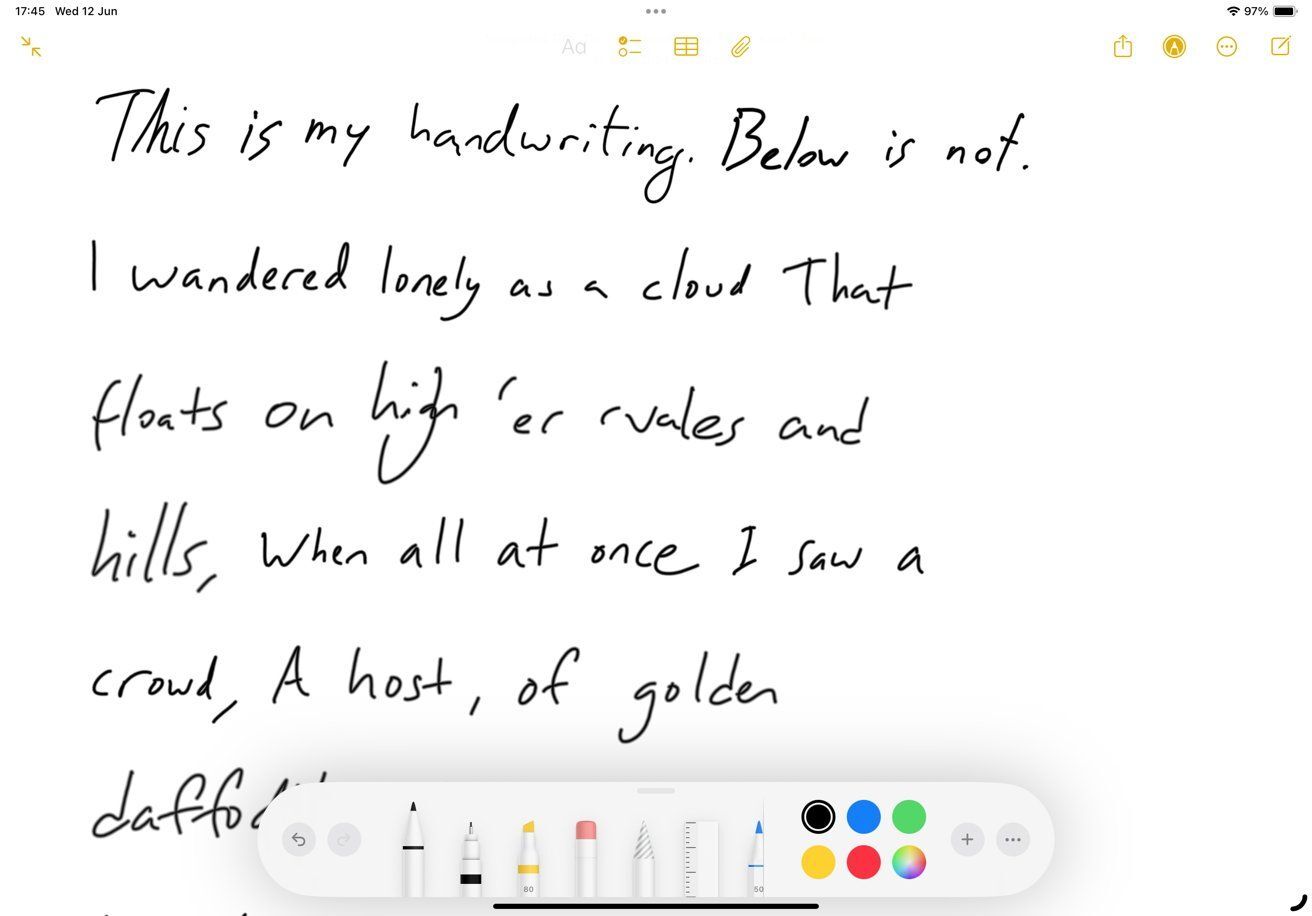 17:45 Wed 12 Jun 97%
Aa
This is my handwriting. Below is not.
I wandered lonely as a cloud That
floats on high 'er rvales and
hills, When all at once I saw a
crowd, A host, of golden
80 50